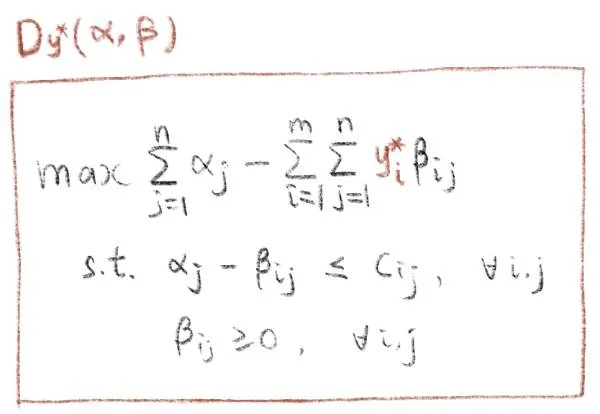 Dy*(α, β)
max ∑_{j=1}^{n} α_j − ∑_{i=1}^{m} ∑_{j=1}^{n} y_i^* β_{ij}
s.t. α_j − β_{ij} ≤ C_{ij}, ∀i,j
β_{ij} ≥ 0, ∀i,j